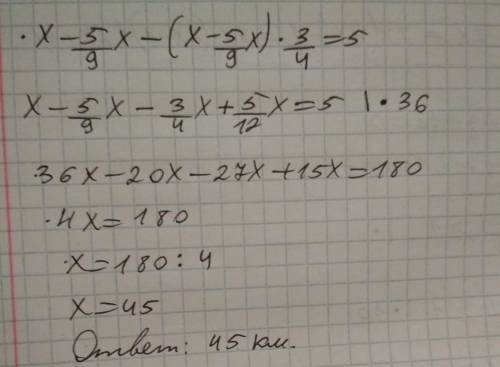 ·x - 5/9 x - (x - 5/9 x) · 3/4 = 5
x - 5/9 x - 3/4 x + 5/12 x = 5 | · 36
·36x - 20x - 27x + 15x = 180
·4x = 180
·x = 180 : 4
x = 45
Ответ: 45 км.